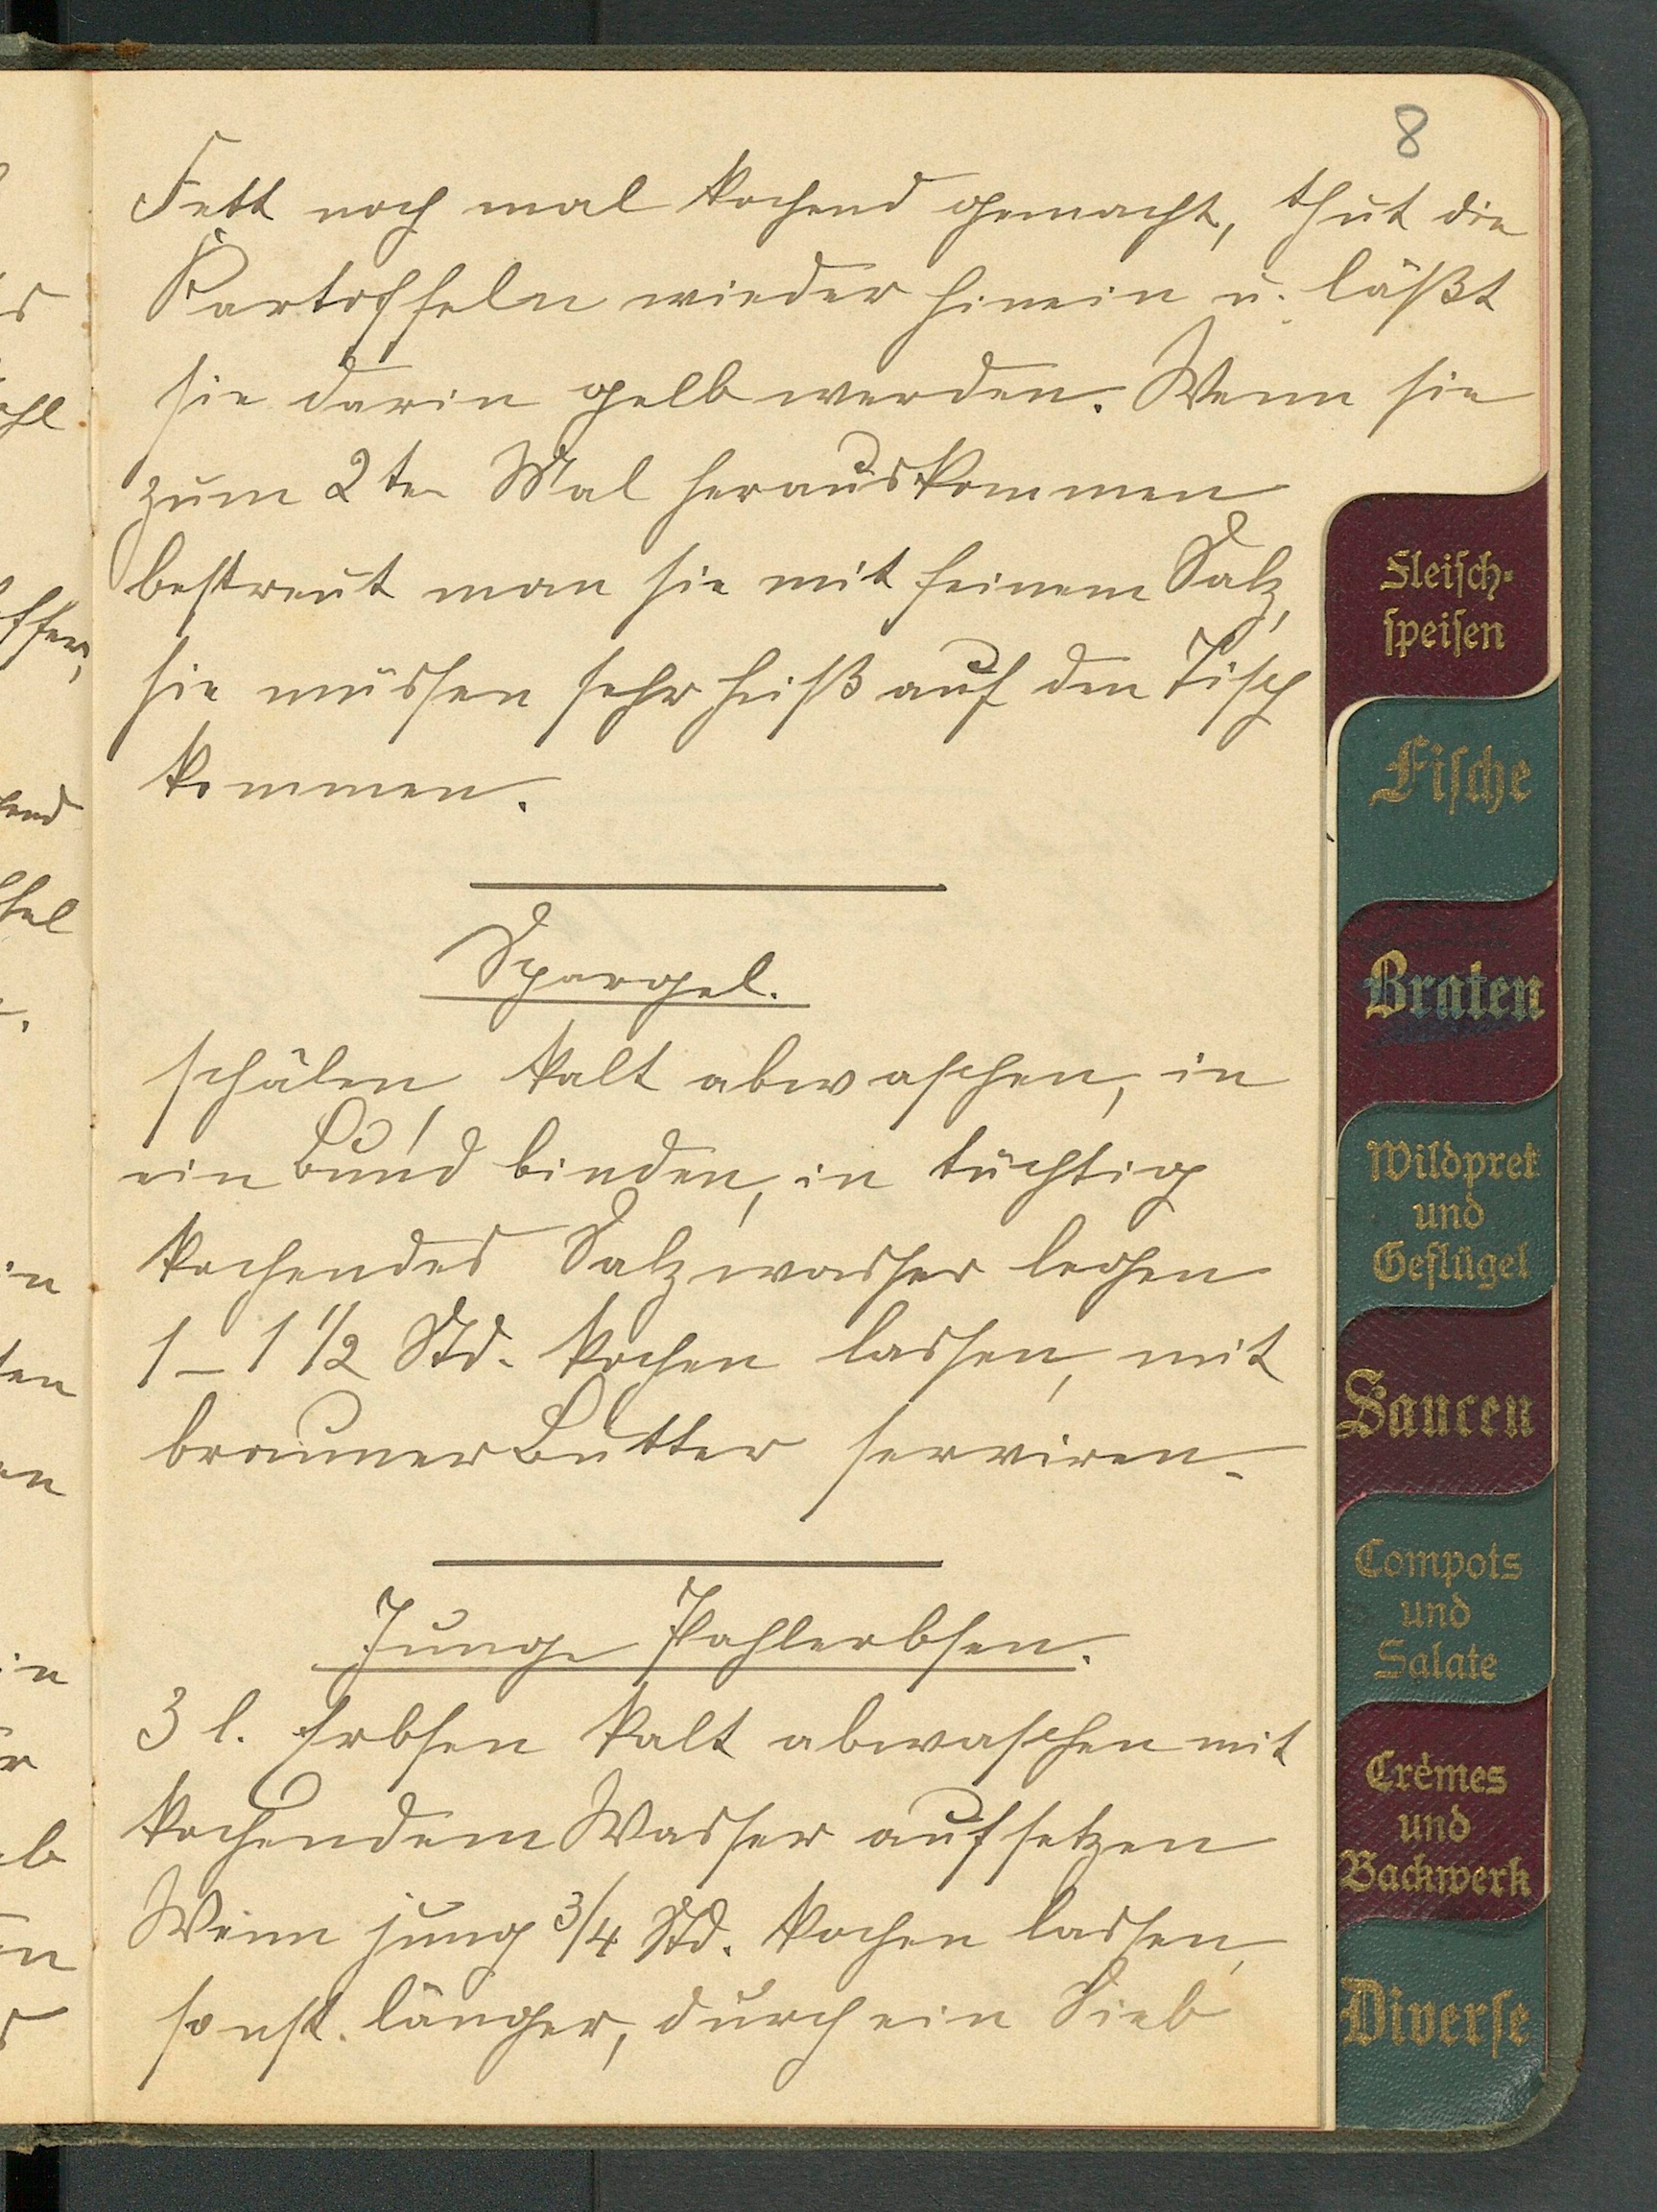 8
Fett noch mal kochend gemacht, thut die
Kartoffeln wieder hinein u. läßt
sie darin gelb werden. Wenn sie
zum 2ten Mal herauskommen
bestreut man sie mit feinem Salz,
sie müssen sehr heiß auf den Tisch
kommen.
Spargel.
schälen, kalt abwaschen, in
ein Bund binden, in tüchtig
kochendes Salzwasser legen
1–1 1/2 Std. kochen lassen, mit
brauner Butter serviren.
Junge Pahlerbsen.
3 l. Erbsen kalt abwaschen mit
kochendem Wasser aufsetzen
Wenn jung 3/4 Std. kochen lassen,
sonst länger, durch ein Sieb
Fleisch-
speisen
Fische
Braten
Wildpret
und
Geflügel
Saucen
Compots
und
Salate
Crèmes
und
Backwerk
Diverse